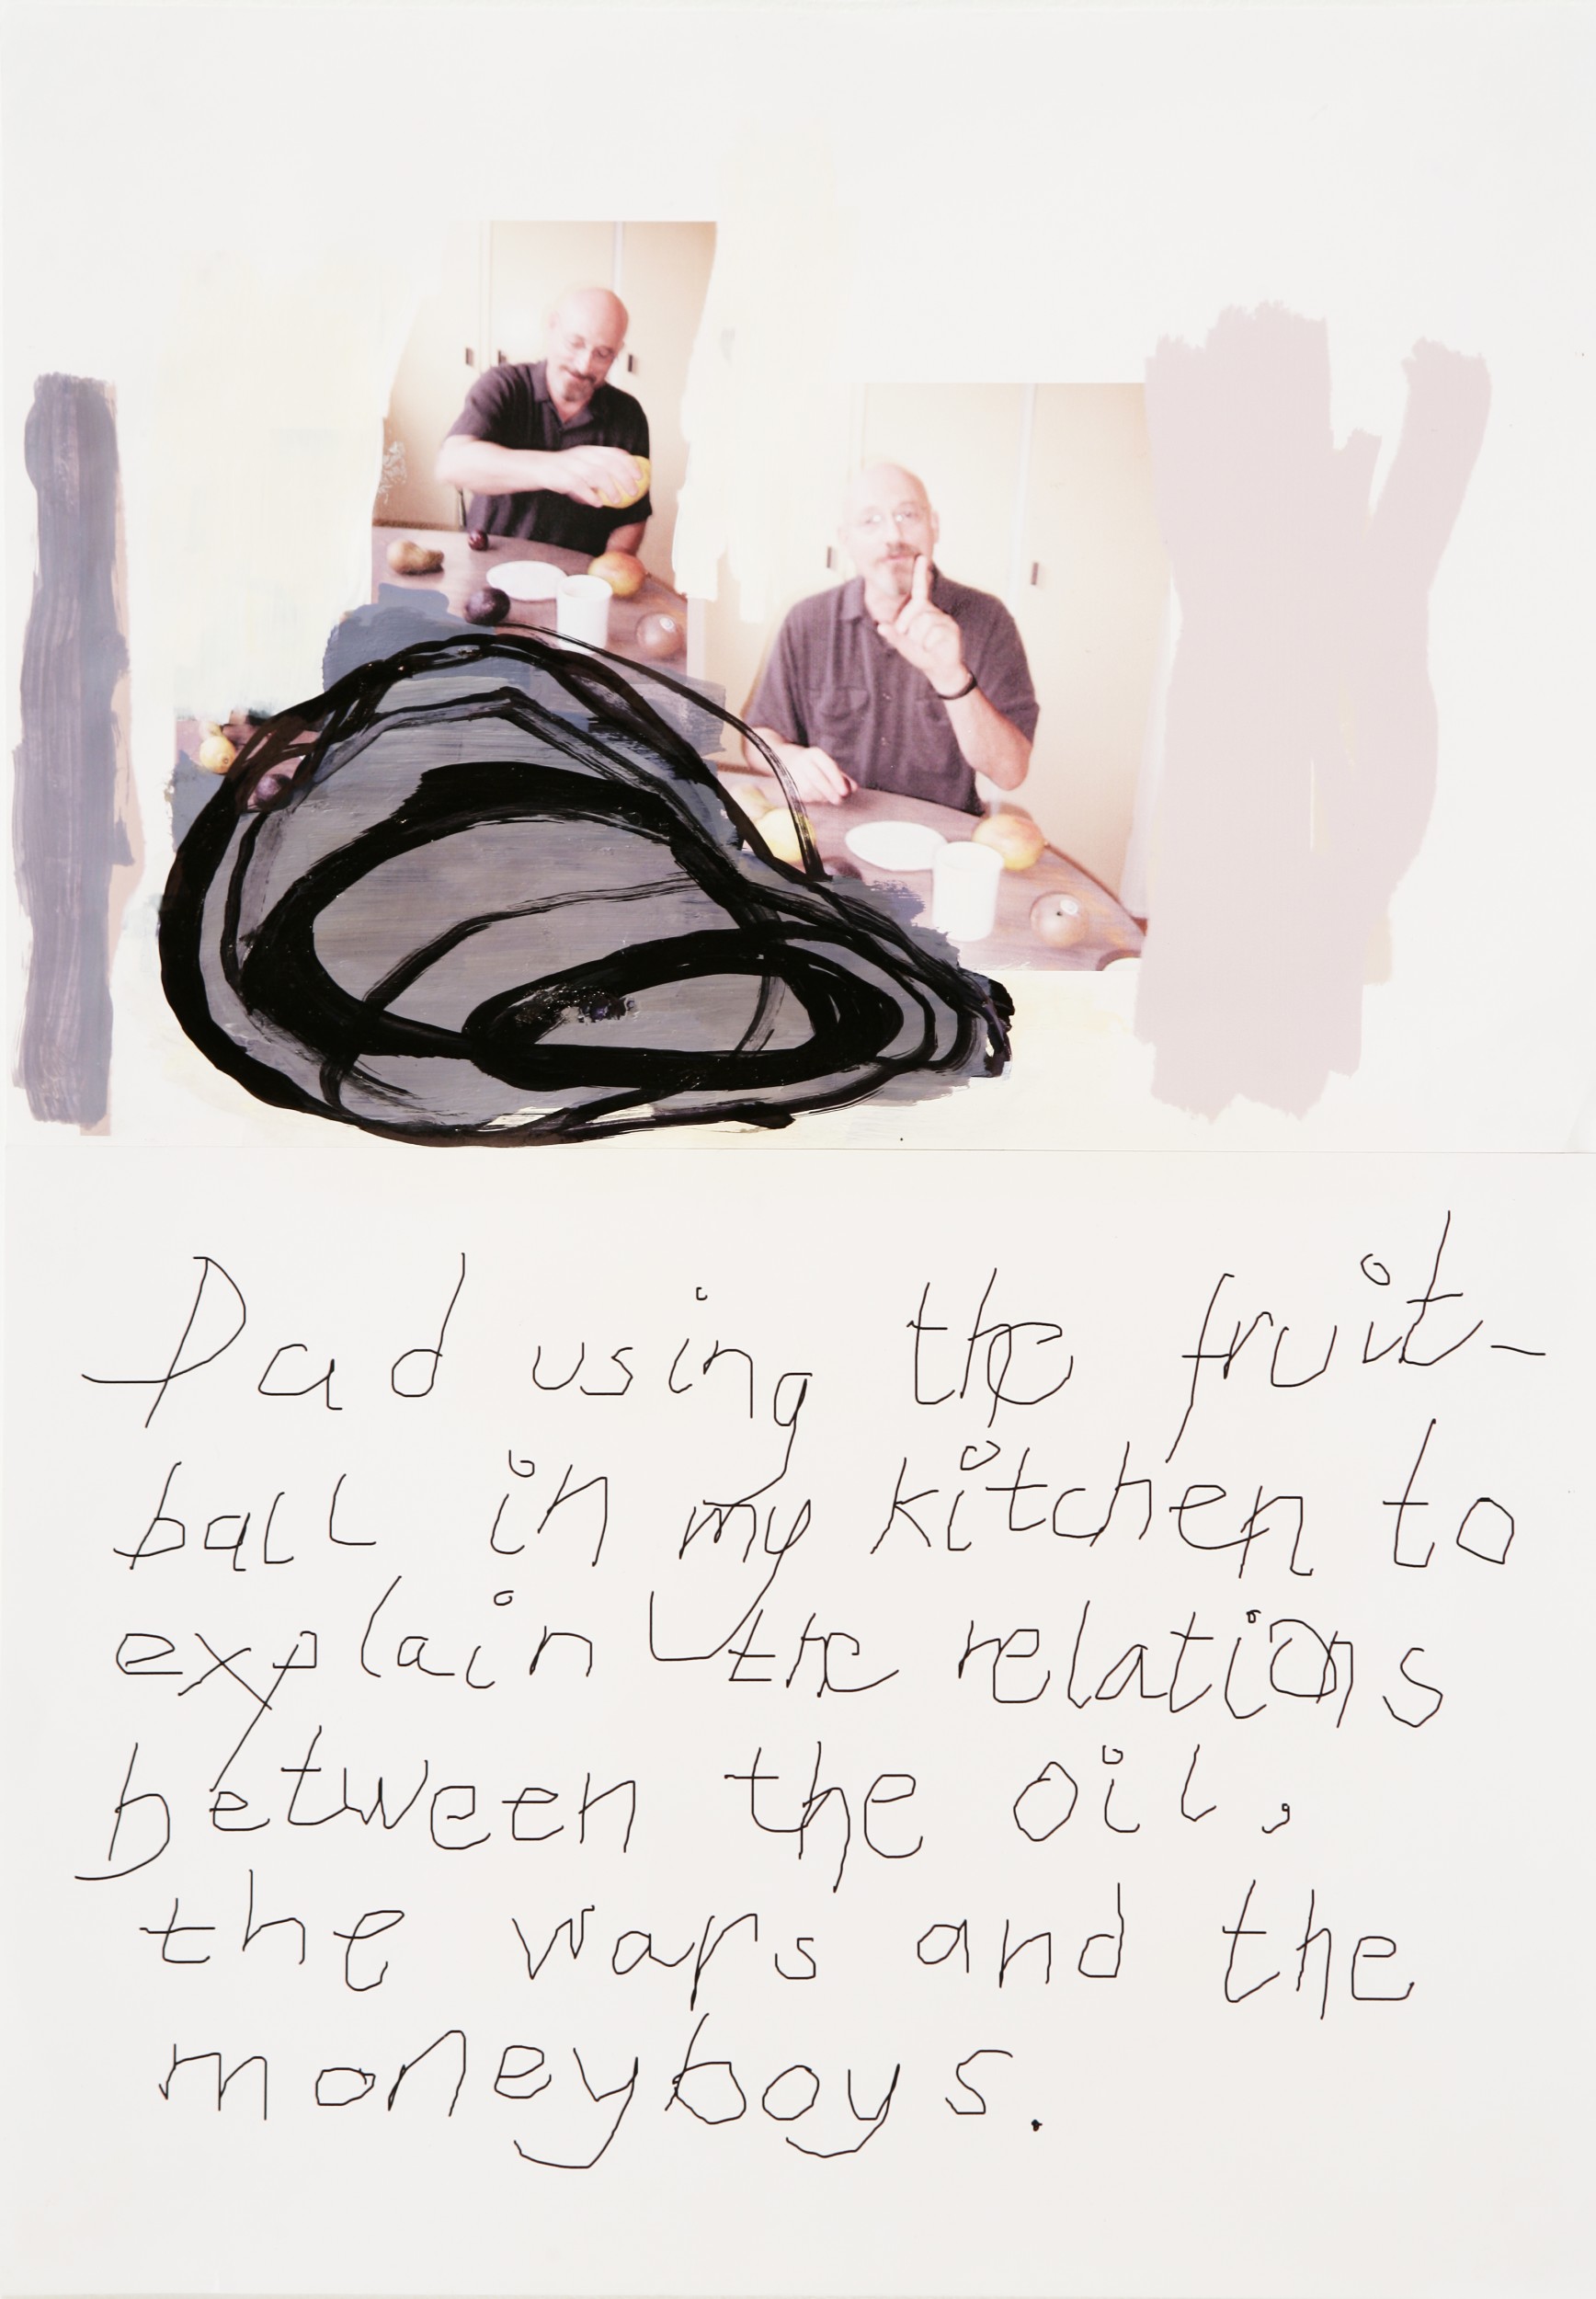 Dad using the fruit-
ball in my kitchen to
explain the relations
between the oil,
the wars and the
moneyboys.